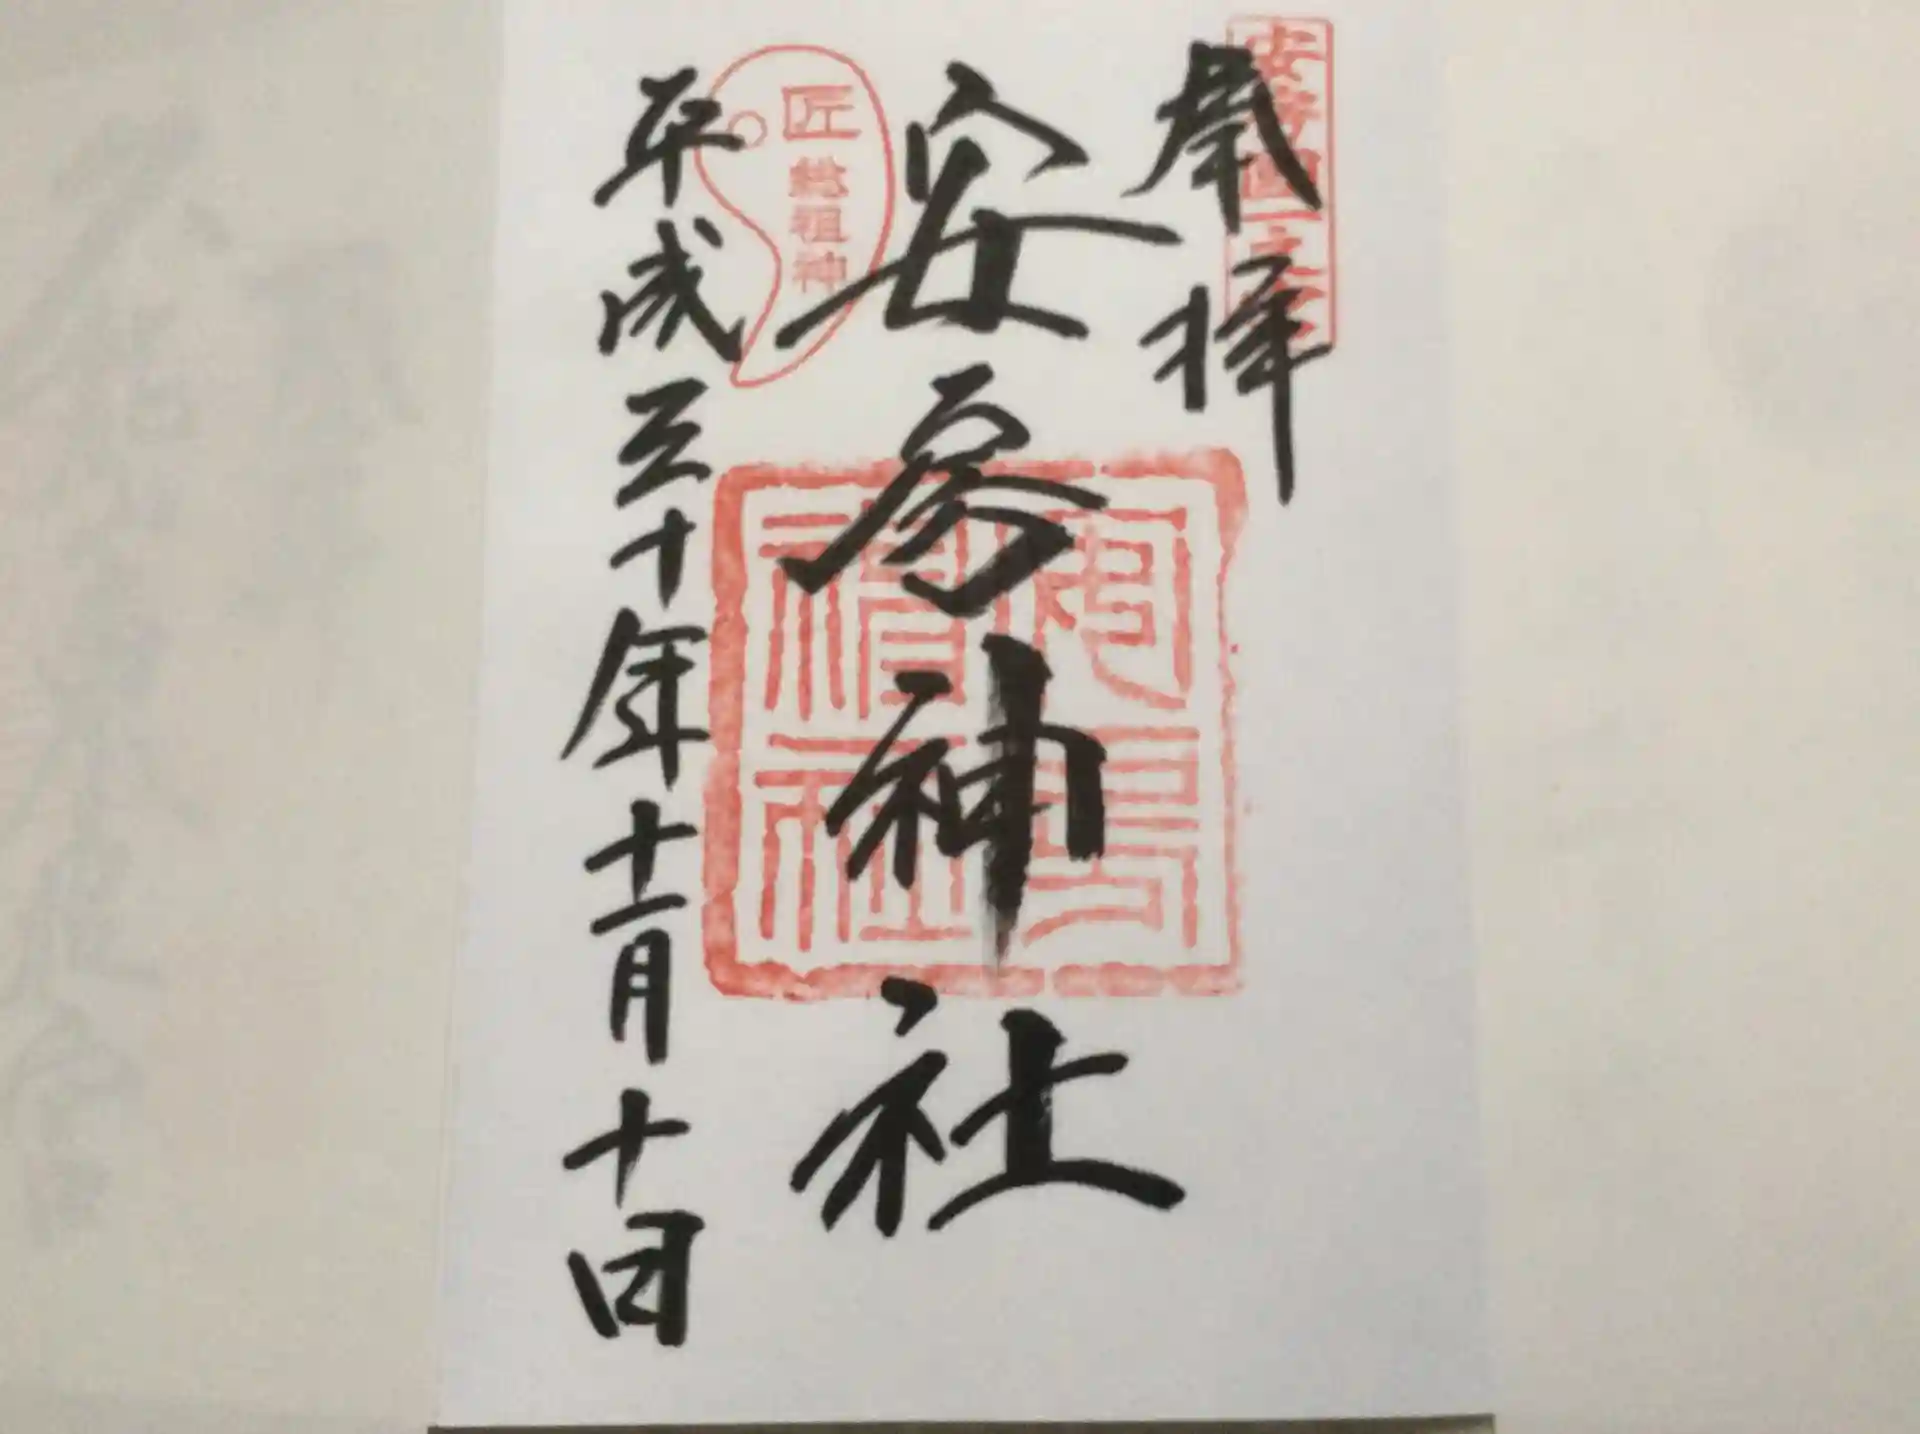 安房國一之宮
奉拝
安房神社
匠
総祖神
平成三十年十一月十日